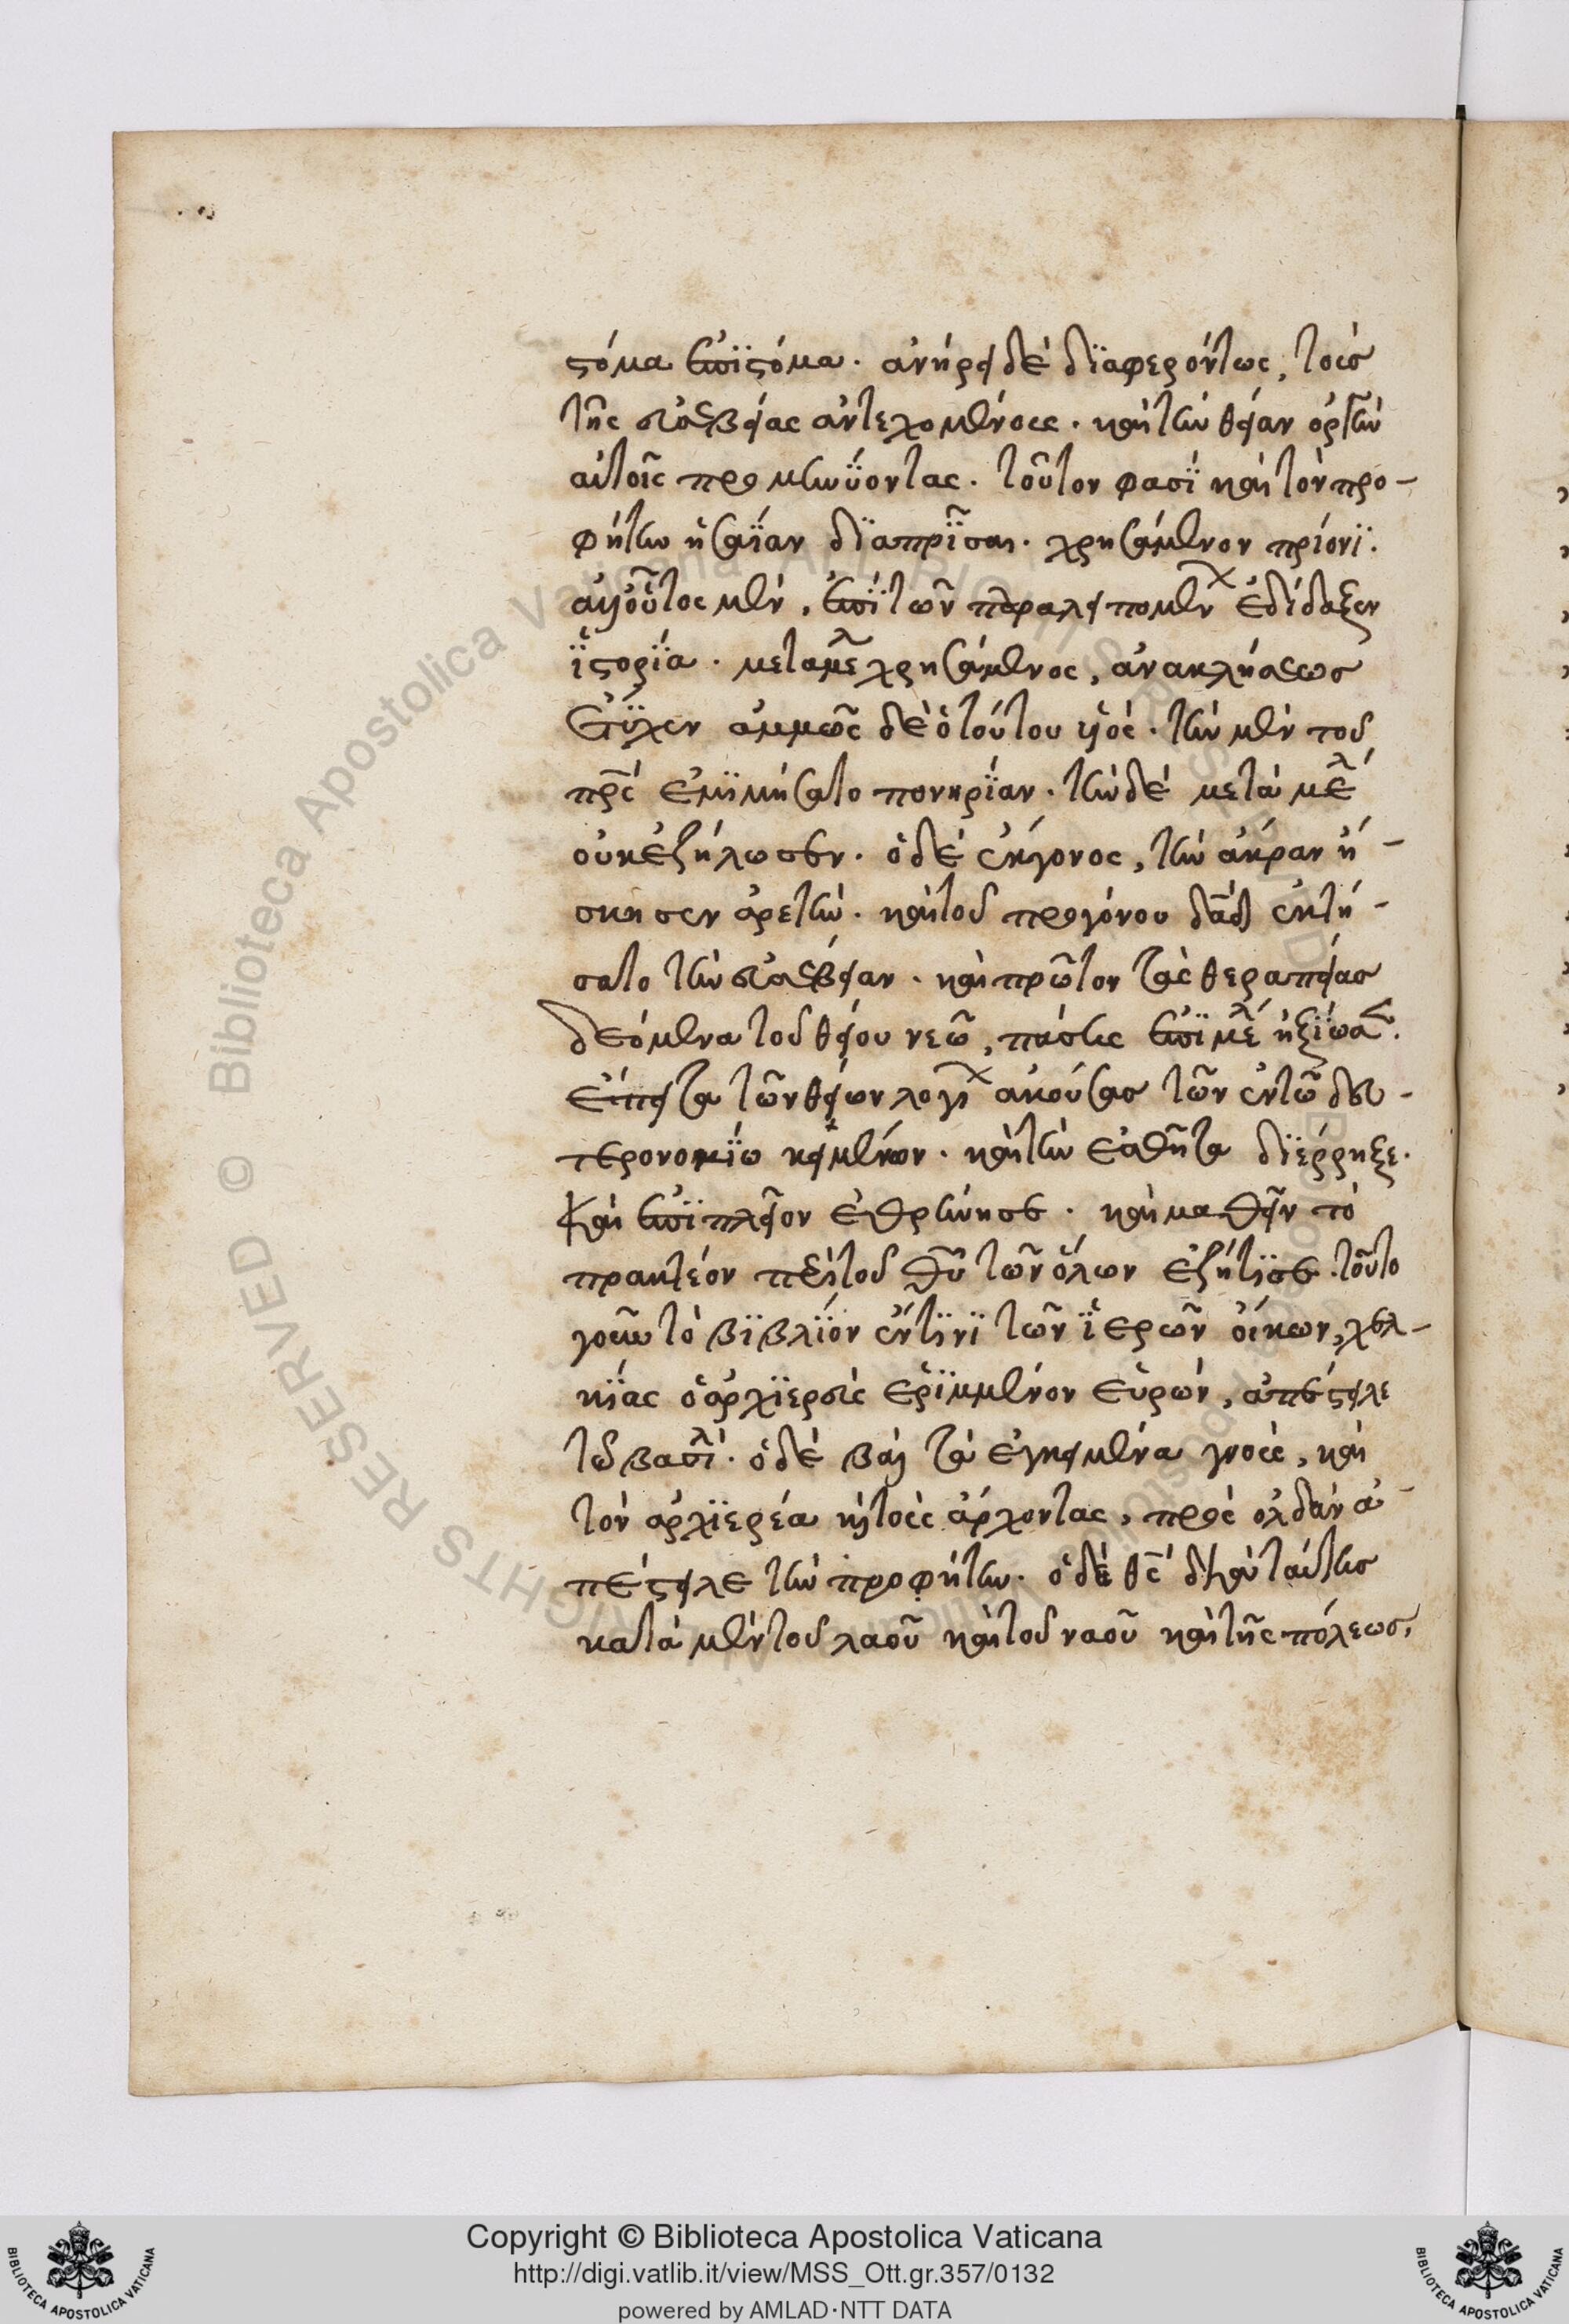 στόμα ἐπϊ στόμα. ἀνήρει δὲ δϊαφερόντως, τοὺσ
τῆς εὐσεβείας ἀντεχομένους. καὶ τὴν θείαν ὀργὴν
αὐτοῖς προμηνϋοντας. τοῦτον φασϊ καὶ τὸν προ-
φήτην ἡσαΐαν δϊαπρῖσαι. χρησάμενον πρίονϊ.
οὗτος μὲν, ἐπϊ τῶν παραλειπομένων ἐδίδαξεν
ἱστορϊα. μεταμελ χρησάμενος, ἀνακλήσεωσ
ἔτϋχεν ἀμμὼς δὲ ὁ τούτου υἱός. τὴν μὲν τοῦ
πρς ἐμϊμήσατο πονηρϊαν. τὴν δὲ μετάμελ
οὐκ ἐζήλωσεν. ὁ δὲ ἔκγονος, τὴν ἄκραν ἤ-
σκησεν ἀρετὴν. καὶ τοῦ προγόνου δαδ ἐκτή-
σατο τὴν εὐσέβειαν. καὶ πρῶτον τὰς θεραπείασ
δεόμενα τοῦ θείου νεῶ, πάσης ἐπϊμελ ἠξϊωσ.
ἔπειτα τῶν θείων λογι ἀκούσασ τῶν ἐν τῶ δευ-
τερονομϊω κειμένων. καὶ τὴν ἐσθῆτα δϊέρρηξε.
καὶ ἐπϊπλεῖον ἐθρήνησε. καὶ μαθεῖν τὸ
πρακτέον περὶ τοῦ θυ τῶν ὅλων ἐζήτϊσε. τοῦτο
γοῦν τὸ βϊβλϊον ἔν τϊνϊ τῶν ϊερῶν οἴκων, χελ-
κϊας ὁ ἀρχϊερεὺς ἐρϊμμένον εὑρὼν, ἀπέστειλε
τῶ βασιλ. ὁ δὲ βασ τὰ ἐγκείμενα γνοὺς, καὶ
τὸν ἀρχϊερέα καὶ τοὺς ἄρχοντας, πρὸς ολδὰν ἀ-
πέστειλε τὴν προφήτην. ὁ δὲ θς διὰ ταύτησ
κατὰ μὲν τοῦ λαοῦ καὶ τοῦ ναοῦ καὶ τῆς πόλεωσ,
Biblioteca Apostolica Vaticana ALL RIGHTS RESERVED ©
Copyright © Biblioteca Apostolica Vaticana
http://digi.vatlib.it/view/MSS_Ott.gr.357/0132
powered by AMLAD·NTT DATA
BIBLIOTECA APOSTOLICA VATICANA
BIBLIOTECA APOSTOLICA VATICANA